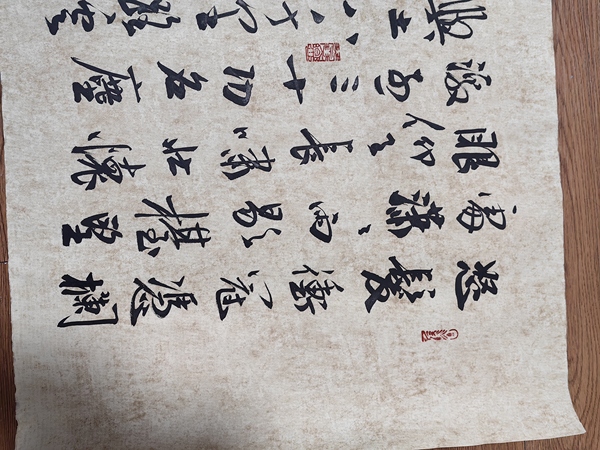 怒髮衝冠憑欄
處瀟〻雨歇抬望
眼仰天長嘯壯懷
激烈三十功名塵
與土八千里路雲